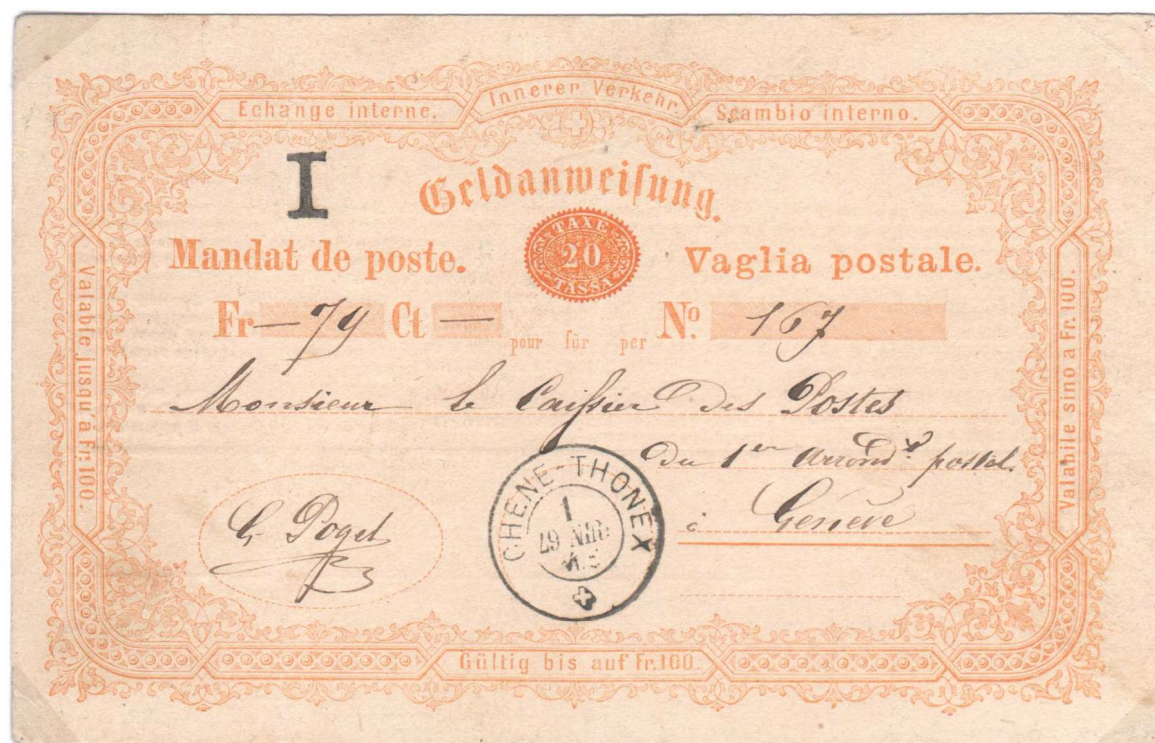 Echange interne. Innerer Verkehr. Scambio interno.
I
Geldanweisung.
TAXE
20
TASSA
Mandat de poste. Vaglia postale.
Fr — 79 Ct — pour für per No. 167
Monsieur le Caissier des Postes
du 1er Arrondt postal.
à Genève
G. Poget
CHENE-THONEX
1
29
Valable jusqu'à Fr. 100.
Valabile sino a Fr. 100.
Gültig bis auf Fr. 100.